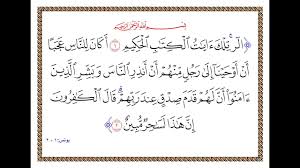 بِسْمِ اللَّهِ الرَّحْمَٰنِ الرَّحِيمِ
﴿ الٓر ۚ تِلْكَ ءَايَٰتُ ٱلْكِتَٰبِ ٱلْحَكِيمِ ١ أَكَانَ لِلنَّاسِ عَجَبًا
أَنْ أَوْحَيْنَآ إِلَىٰ رَجُلٍ مِّنْهُمْ أَنْ أَنذِرِ ٱلنَّاسَ وَبَشِّرِ ٱلَّذِينَ
ءَامَنُوٓا۟ أَنَّ لَهُمْ قَدَمَ صِدْقٍ عِندَ رَبِّهِمْ ۗ قَالَ ٱلْكَٰفِرُونَ
إِنَّ هَٰذَا لَسَٰحِرٌ مُّبِينٌ ٢ ﴾
يونس: ١ - ٢